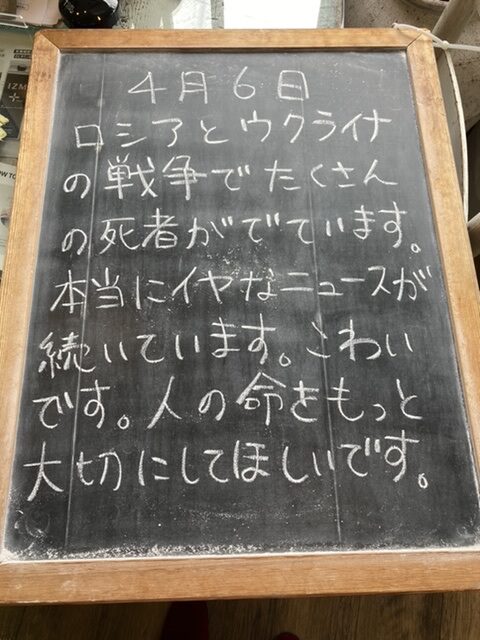 4月6日
ロシアとウクライナ
の戦争でたくさん
の死者がでています。
本当にイヤなニュースが
続いています。こわい
です。人の命をもっと
大切にしてほしいです。
IZM